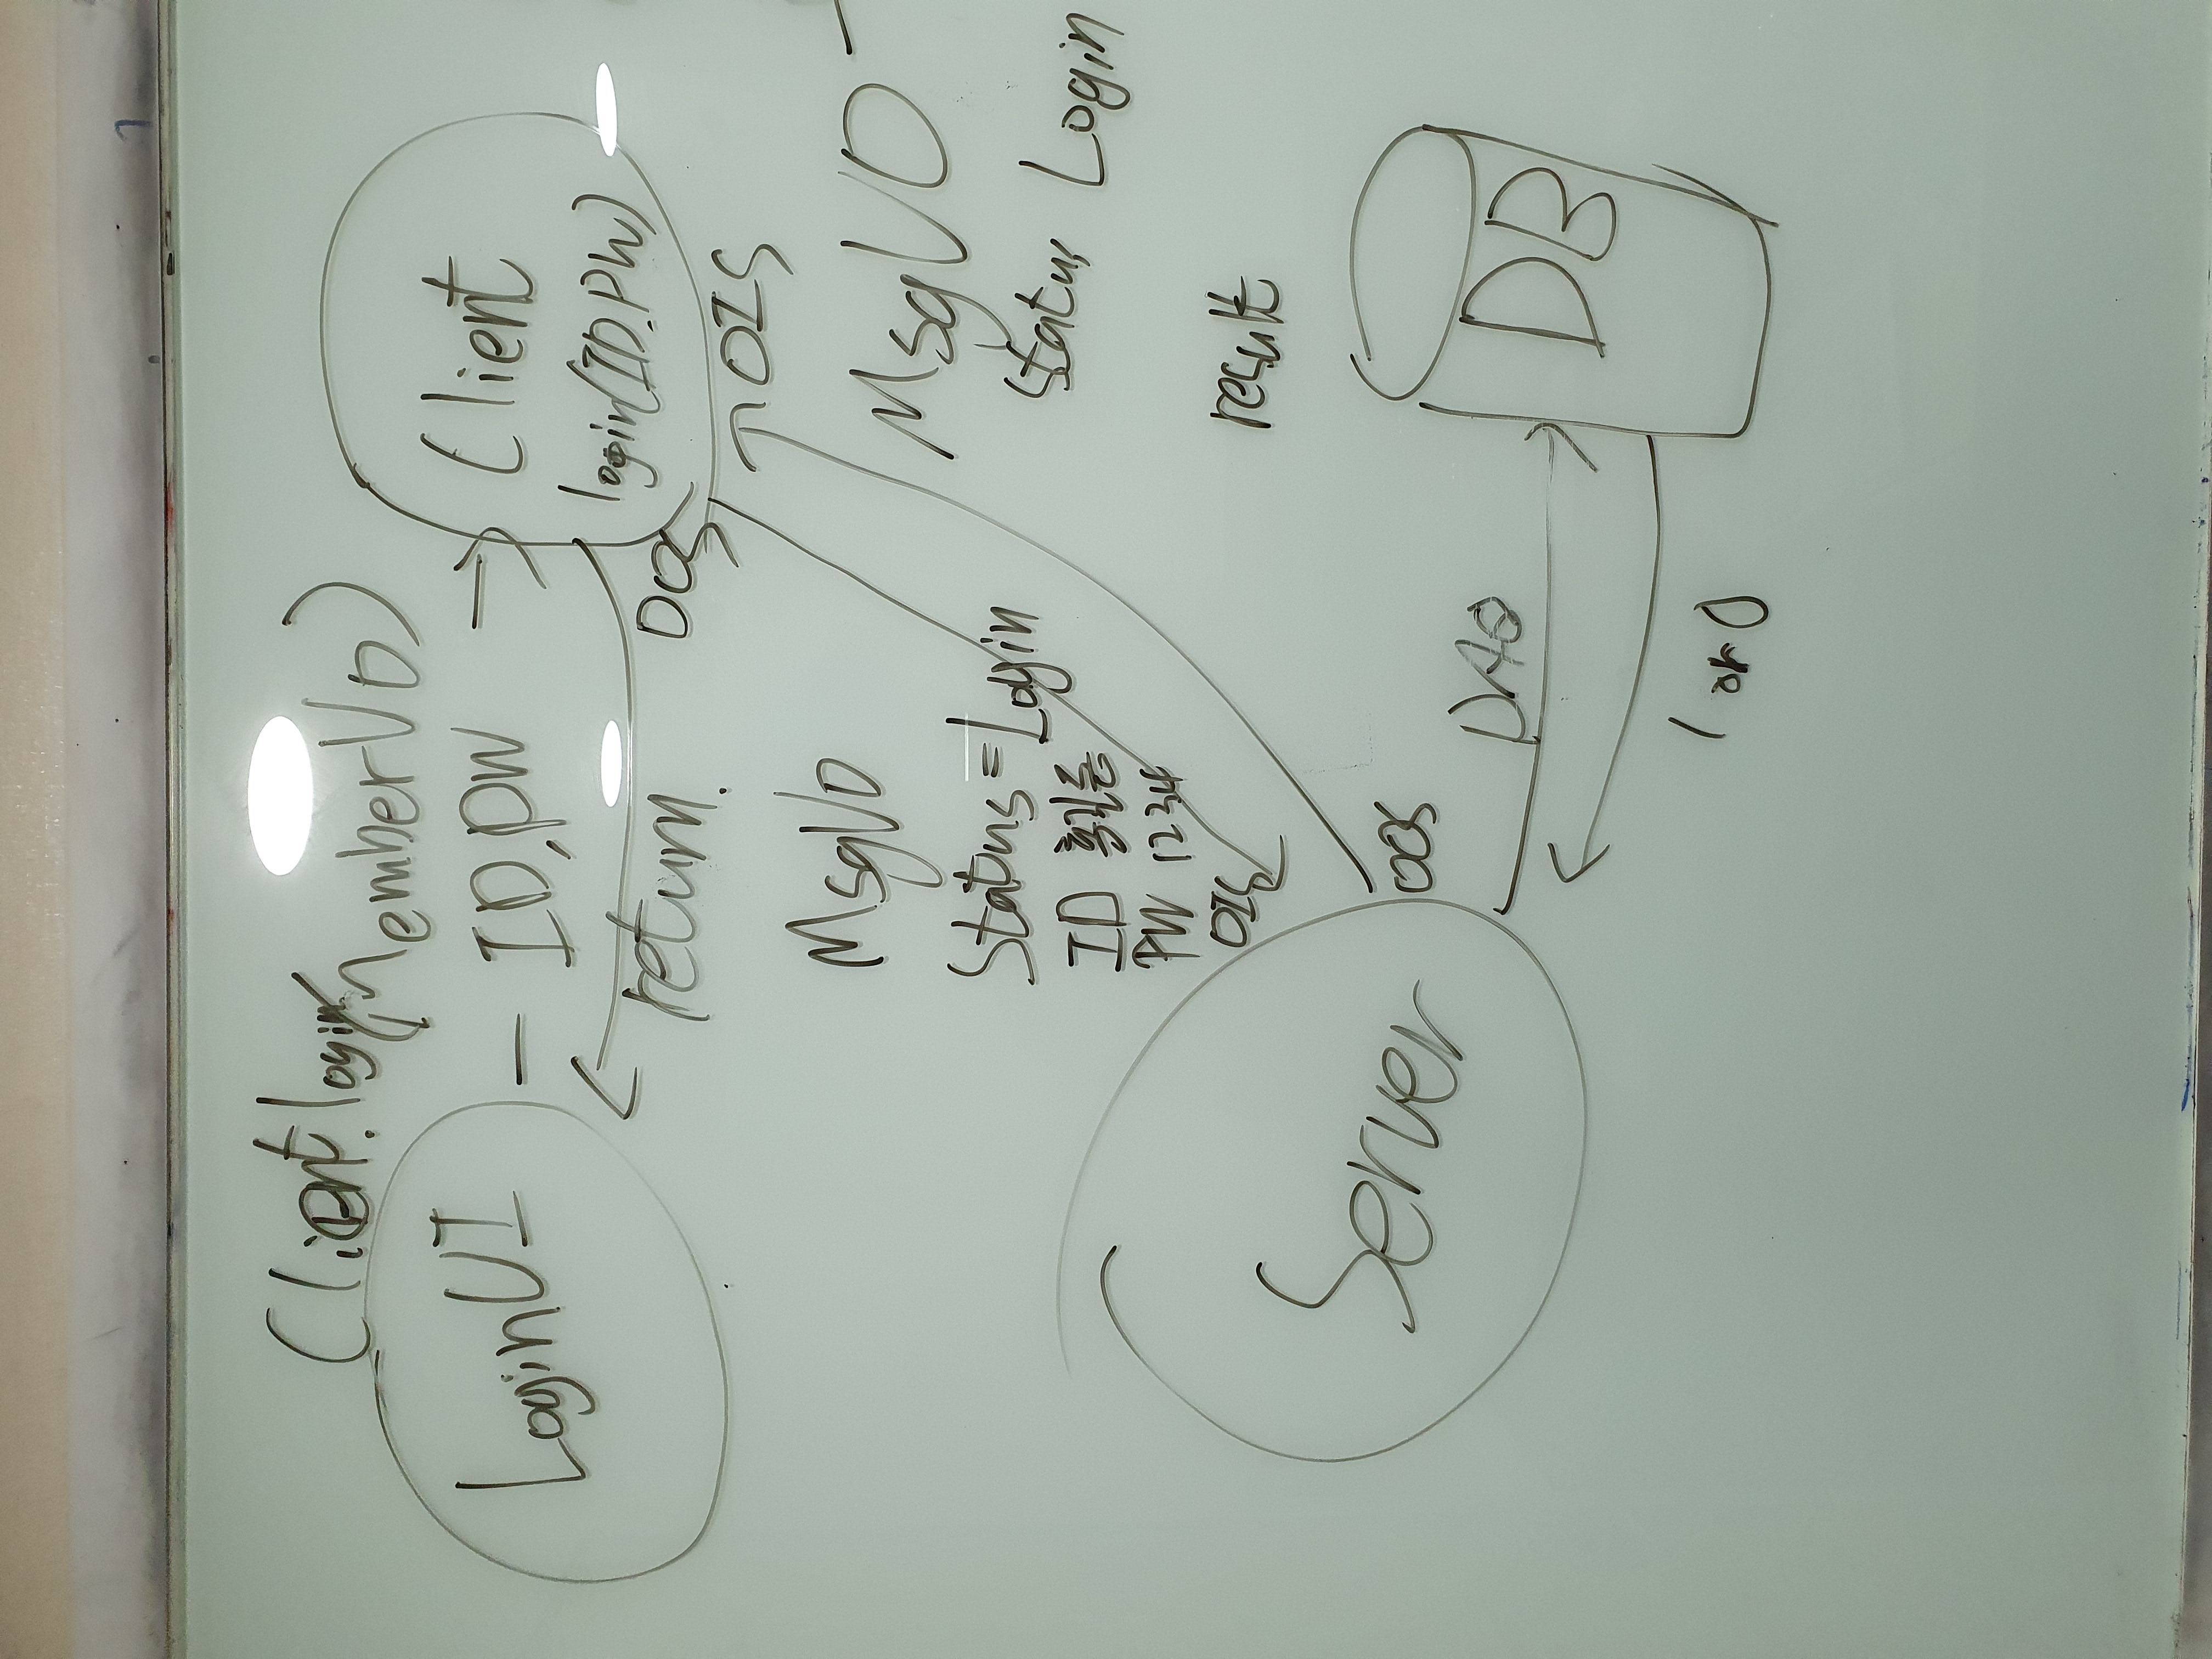 Client.login(MemberVO)
LoginUI
ID, PW
Client
login(ID, PW)
return.
OOS
OIS
MsgVO
Status = Login
ID 홍길동
PW 1234
OIS
MsgVO
Status Login
result
Server
OOS
DAO
DB
1 or 0